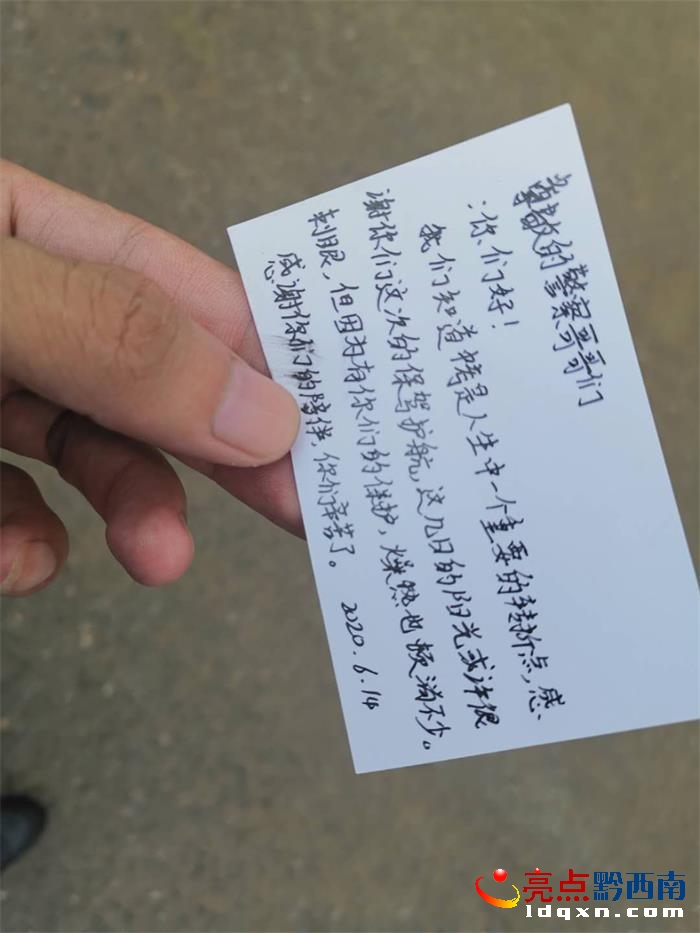 尊敬的警察哥哥们
:你们好!
我们知道中考是人生中一个重要的转折点,感
谢你们这次的保驾护航,这几日的阳光或许很
刺眼,但因为有你们的保护,燥热也顿消不少。
感谢你们的陪伴,你们辛苦了。 2020.6.14
亮点黔西南
ldqxn.com